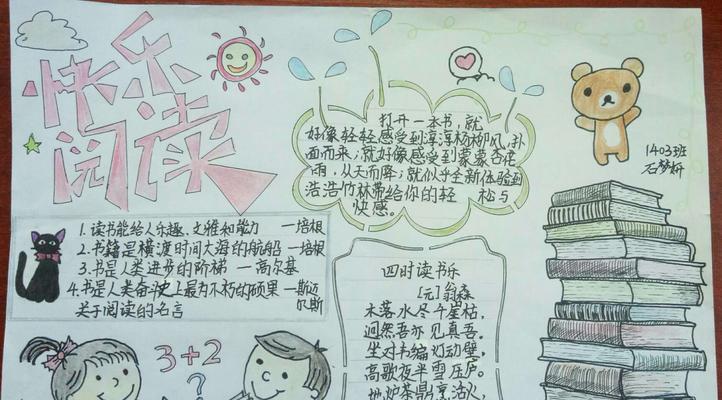 快乐
阅读
打开一本书,就
好像轻轻感受到淳淳杨柳风,扑
面而来;就好像感受到蒙蒙杏花
雨,从天而降;就似乎全新体验到
浩浩竹林带给你的轻松与
快感。
1403班
石梦妍
1.读书能给人乐趣、文雅和能力 —培根
2.书籍是横渡时间大海的航船 —培根
3.书是人类进步的阶梯 —高尔基
4.书是人类奋斗史上最为不朽的硕果 —斯迈
尔斯
关于阅读的名言
四时读书乐
[元]翁森
木落水尽千崖枯,
迥然吾亦见真吾。
坐对韦编灯动壁,
高歌夜半雪压庐。
地炉茶鼎烹活火,
3+2
?